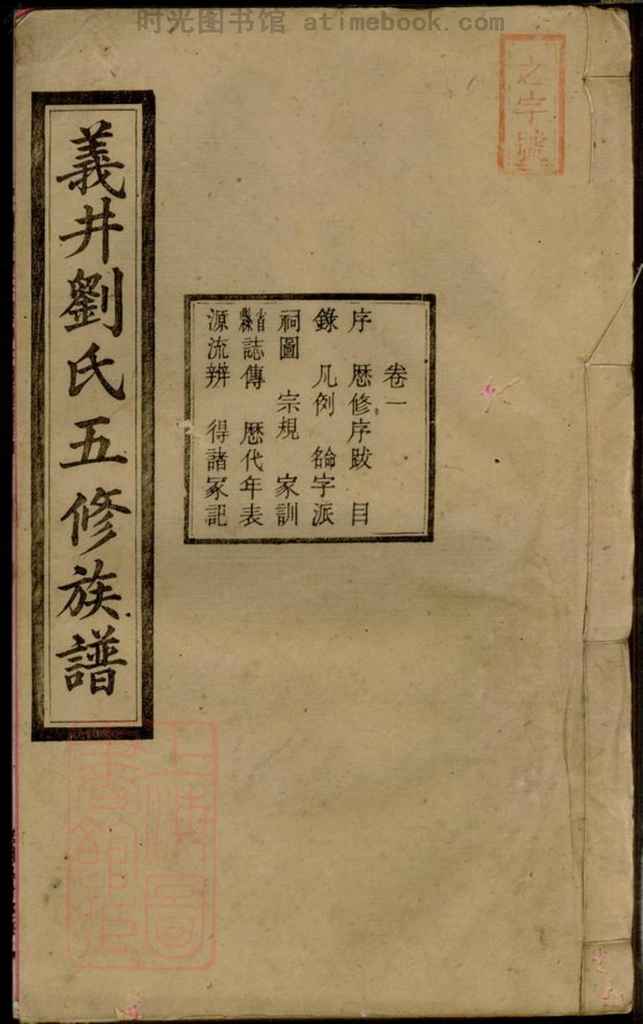 时光图书馆 atimebook.com
之字號
義井劉氏五修族譜
卷一
序 歷修序跋 目
錄 凡例 論字派
祠圖 宗規 家訓
省縣誌傳 歷代年表
源流辨 得諸冢記
上海圖
書館藏